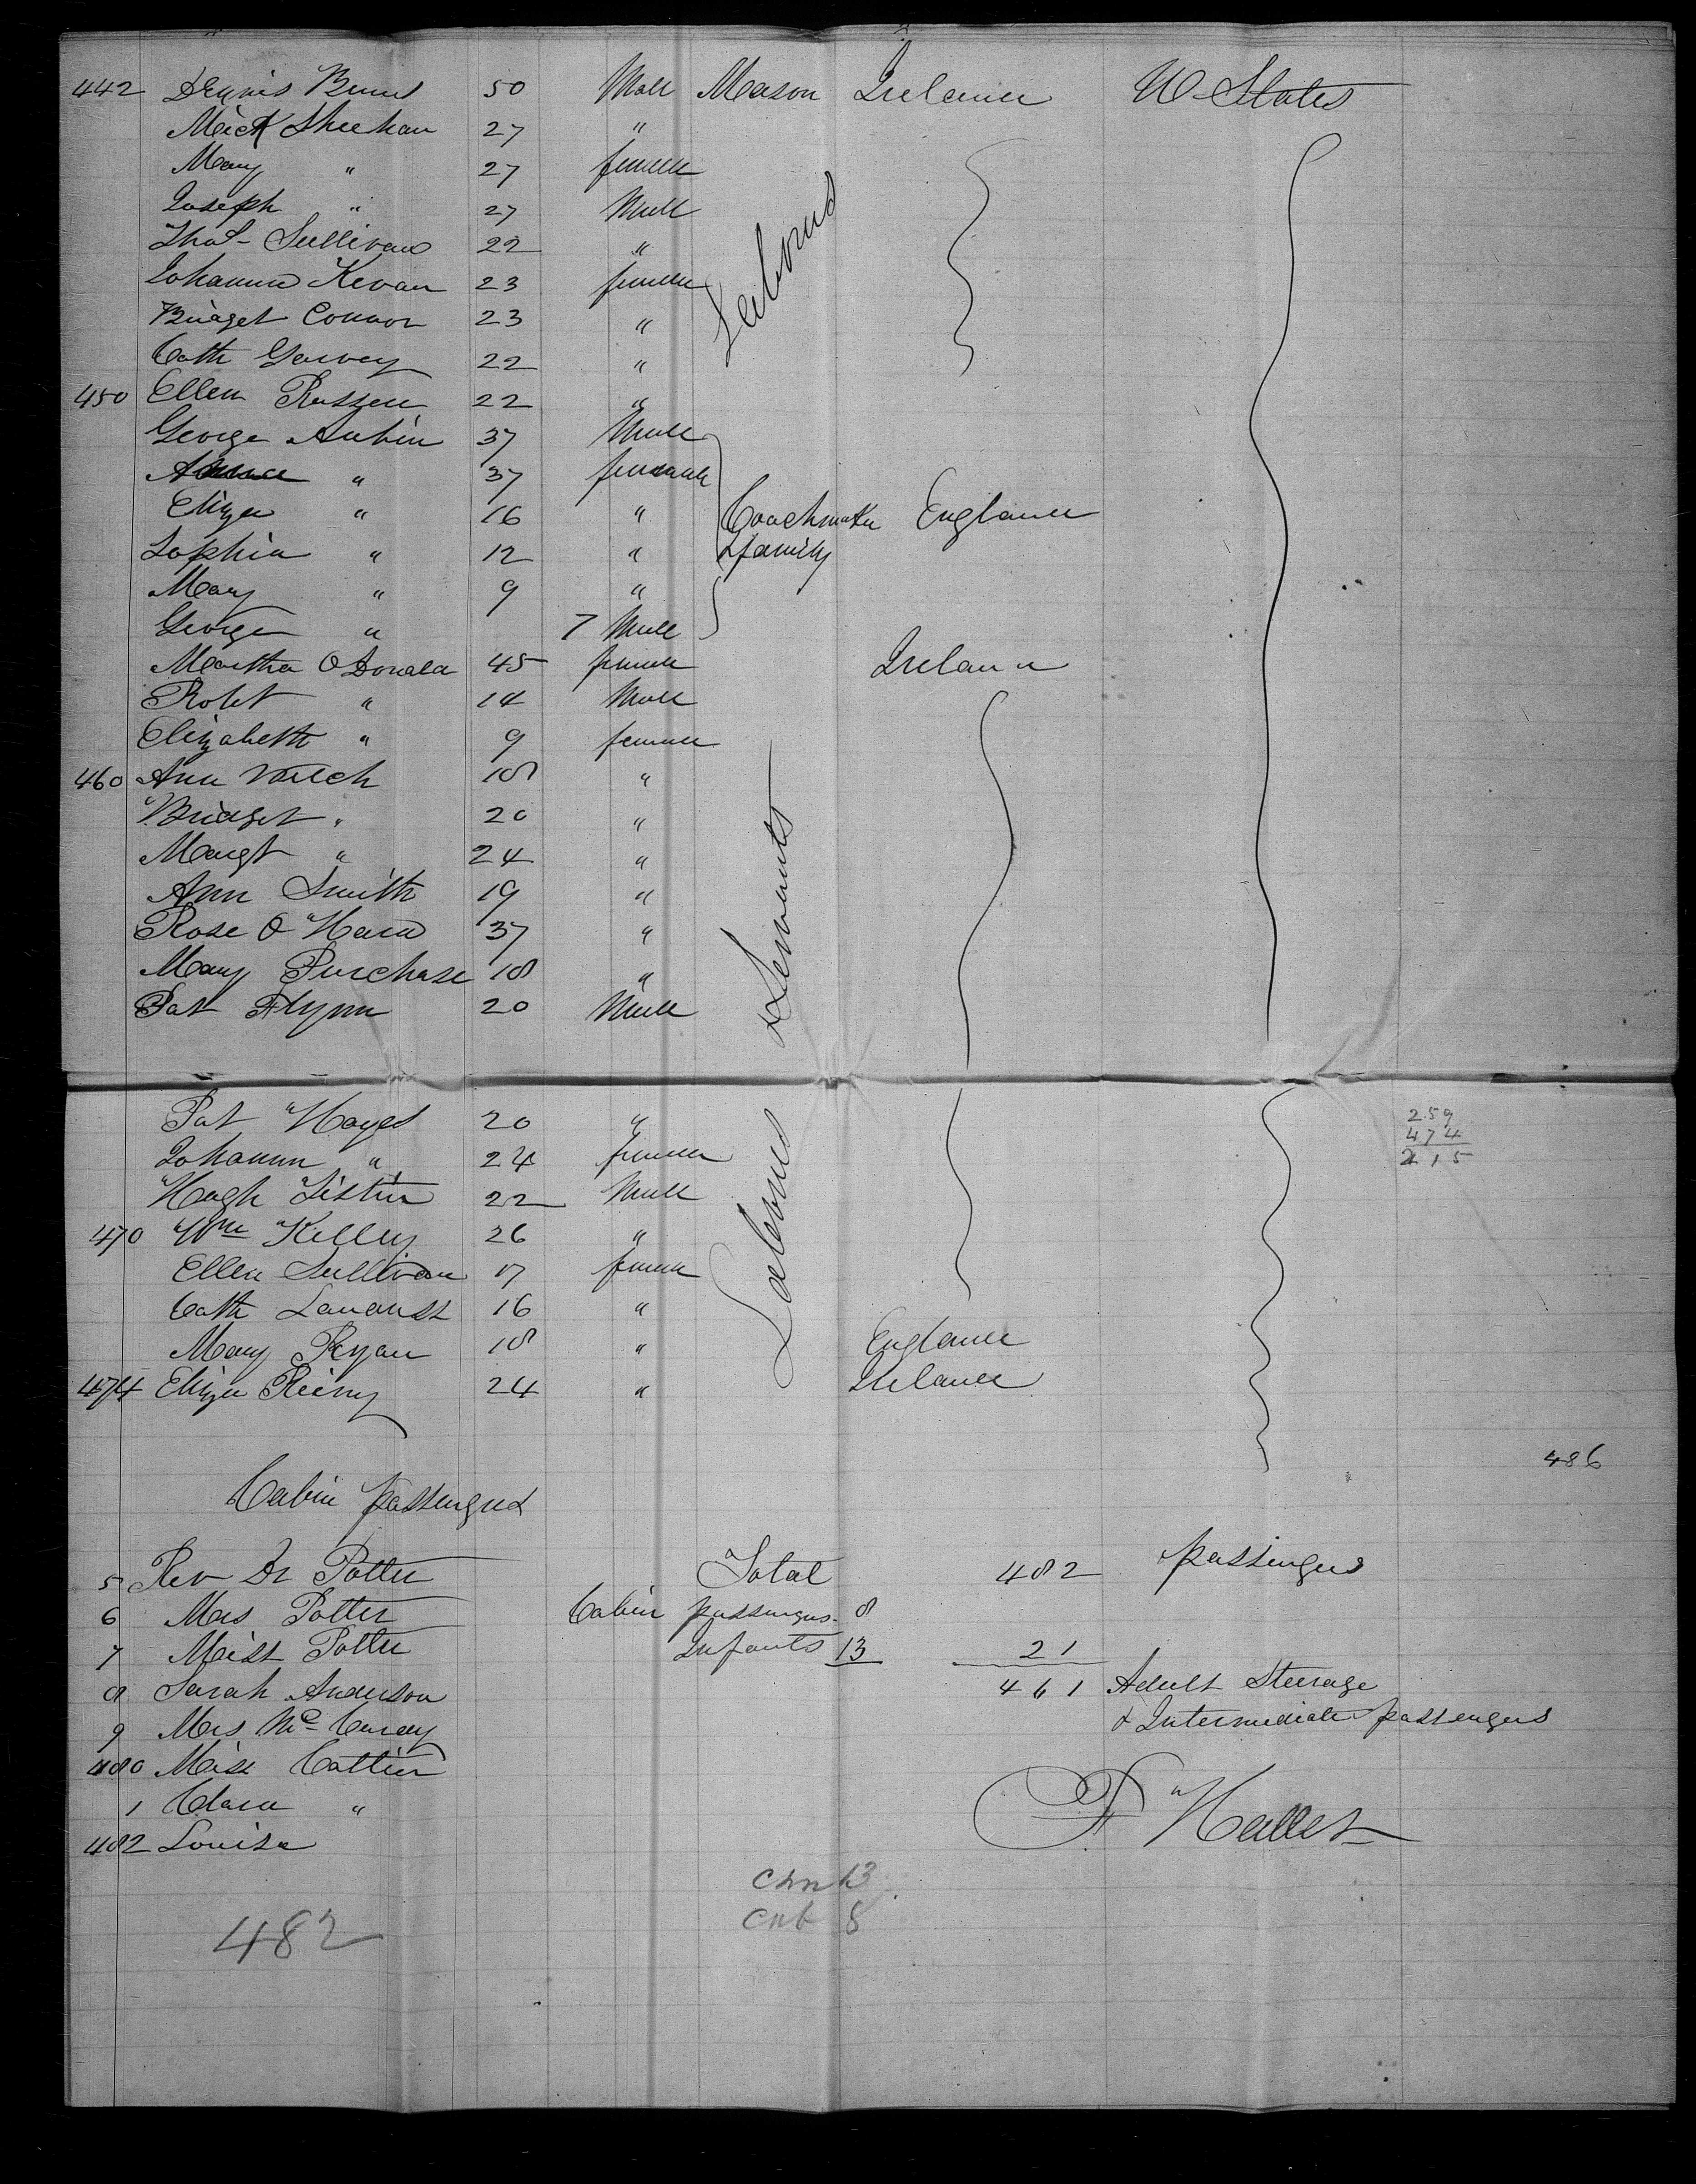 442 Dennis Burns 50 Male Mason Ireland U States
Mick Sheehan 27 "
Mary " 27 female
Joseph " 27 Male
Thos Sullivan 22 "
Johanna Kevan 23 female
Bridget Connor 23 "
Cath Garvey 22 "
450 Ellen Russell 22 "
Labours
George Aubin 37 Male
" 37 female
Eliza " 16 " Coachmaker England
Sophia " 12 " & family
Mary " 9 "
George " 7 Male
Martha O Donald 45 female Ireland
Robt " 14 Male
Elizabeth " 9 female
460 Ann Welch 18 "
Bridget " 20 "
Margt " 24 "
Ann Smith 19 "
Rose O Hara 37 "
Mary Purchase 18 "
Pat Flynn 20 Male
& Servants
Pat Hayes 20 " 259
Johanna " 24 female 474
Hugh 22 Male 215
470 Wm Kelly 26 "
Ellen Sullivan 17 female
Cath 16 "
Mary Ryan 18 " England
474 Eliza 24 " Ireland
Labours
486
Cabin passengers
5 Rev Dr Potter Total 482 passengers
6 Mrs Potter Cabin passengers 8
7 Miss Potter Infants 13 21
8 Sarah Anderson 461 Adult Steerage
9 Mrs Mc Curdy & Intermediate passengers
480 Miss Cottier
1 Clara "
482 Louisa
chn 13
cab 8
482